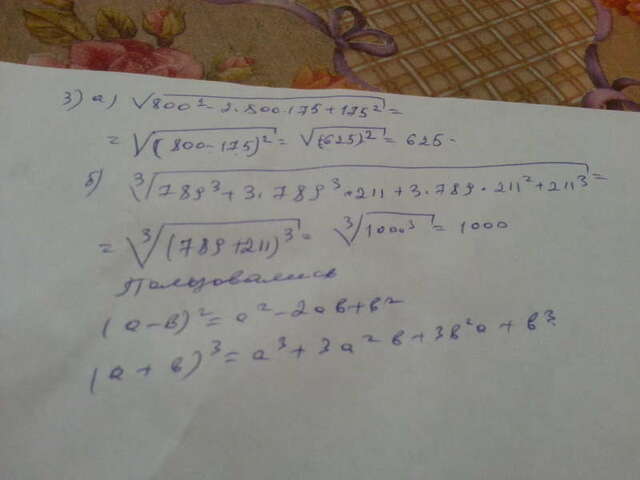 3) а) √800² - 2·800·175 + 175² =
= √(800 - 175)² = √(625)² = 625.
б) ³√789³ + 3·789³·211 + 3·789·211² + 211³ =
= ³√(789 + 211)³ = ³√1000³ = 1000
Пользовались
(а - в)² = а² - 2ав + в²
(а + в)³ = а³ + 3а²в + 3в²а + в³